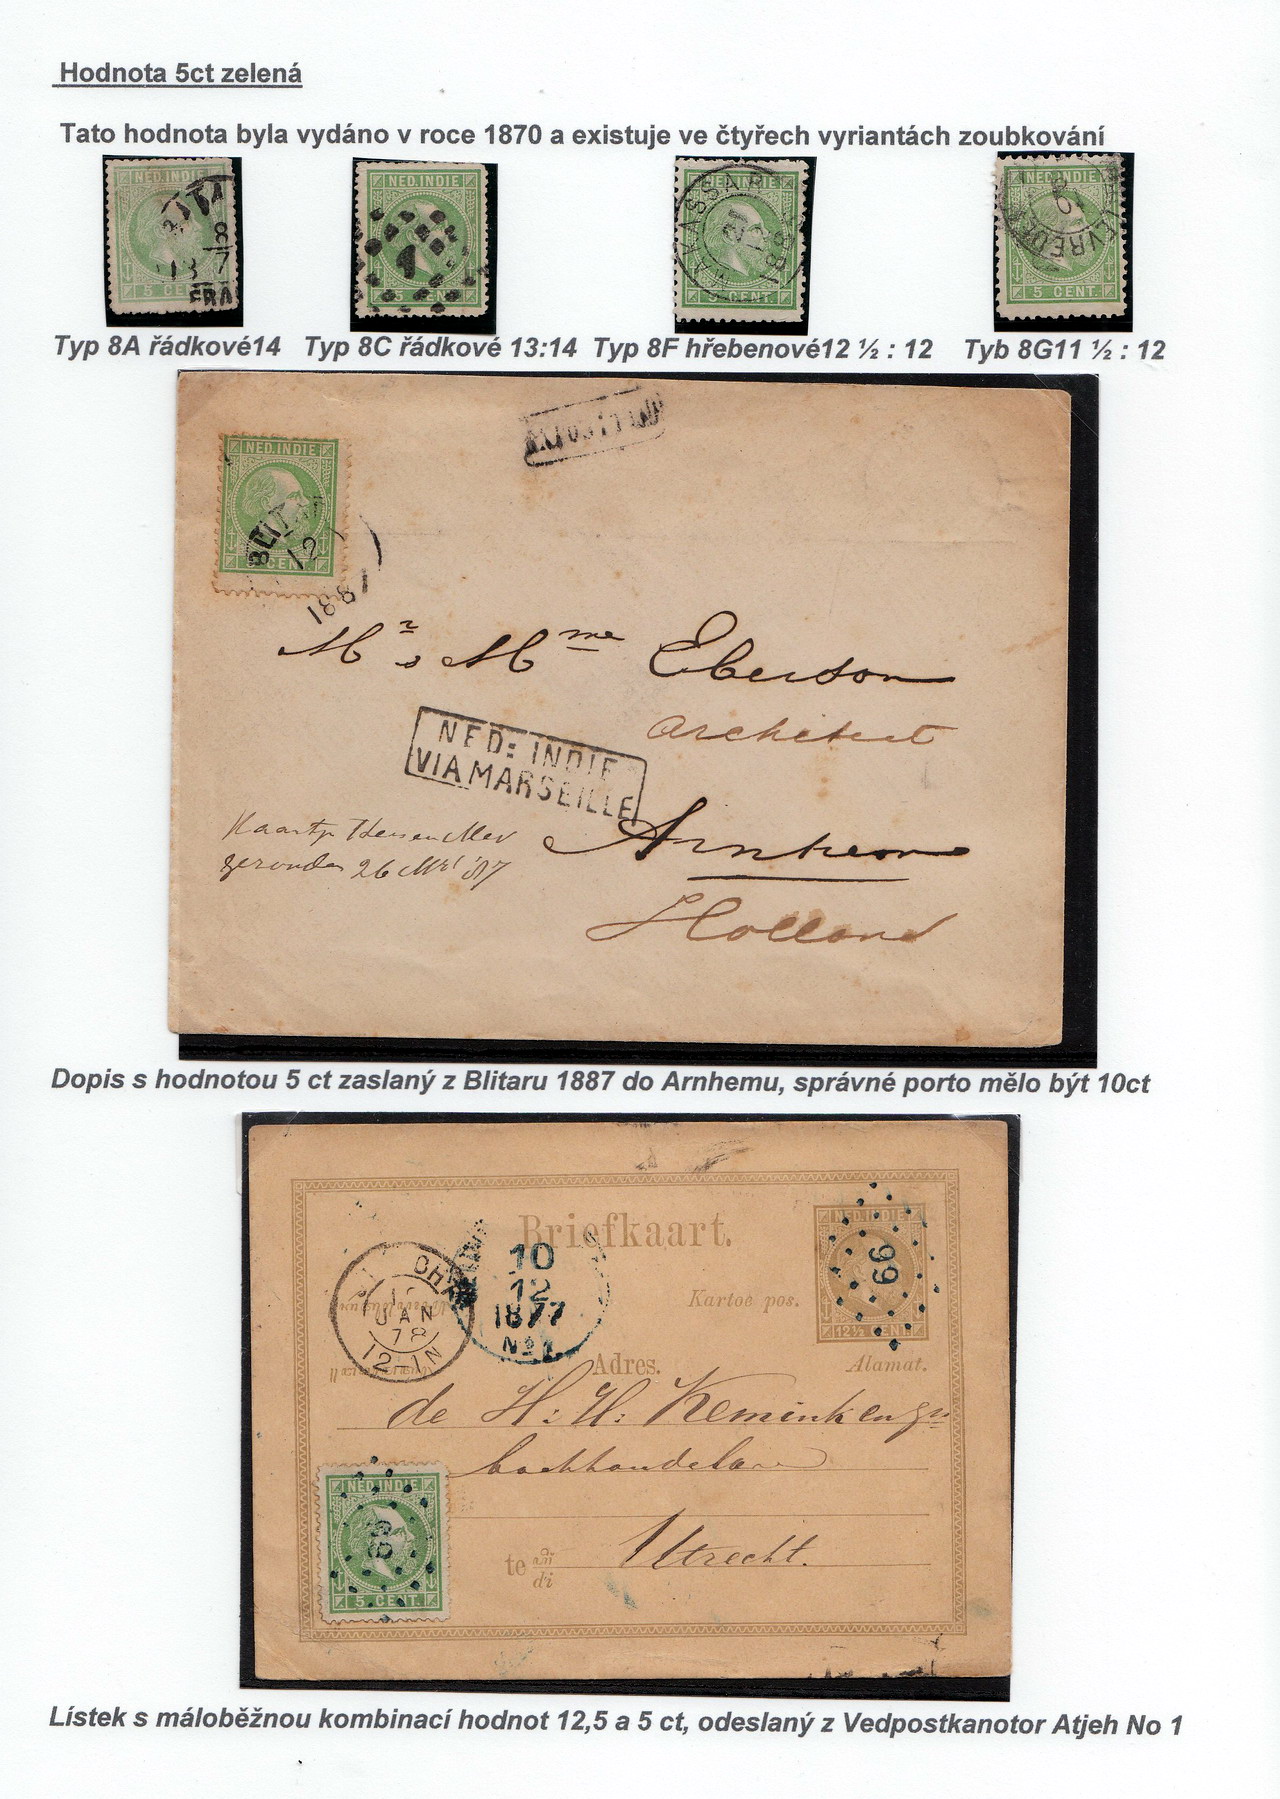 Hodnota 5ct zelená
Tato hodnota byla vydáno v roce 1870 a existuje ve čtyřech vyriantách zoubkování
NED.INDIE
8
13 7
FRA
5 CENT.
NED.INDIE
5 CENT.
NED.INDIE
MAKASSAR
5 CENT.
NED.INDIE
5 CENT.
Typ 8A řádkové14 Typ 8C řádkové 13:14 Typ 8F hřebenové12 ½ : 12 Tyb 8G11 ½ : 12
NED.INDIE
BLIT
12
CENT.
1887
Mr & Mme Eberson
architect
NED: INDIE
VIA MARSEILLE
Arnhem
26 '87
Holland
Dopis s hodnotou 5 ct zaslaný z Blitaru 1887 do Arnhemu, správné porto mělo být 10ct
Briefkaart.
NED.INDIE
66
12½ CENT.
10
12
1877
No 1
JAN
78
12-1N
Kartoe pos.
Adres.
Alamat.
de H: H: Kemink en zn
boekhandelaren
NED.INDIE
5 CENT.
te di
Utrecht.
Lístek s máloběžnou kombinací hodnot 12,5 a 5 ct, odeslaný z Vedpostkanotor Atjeh No 1